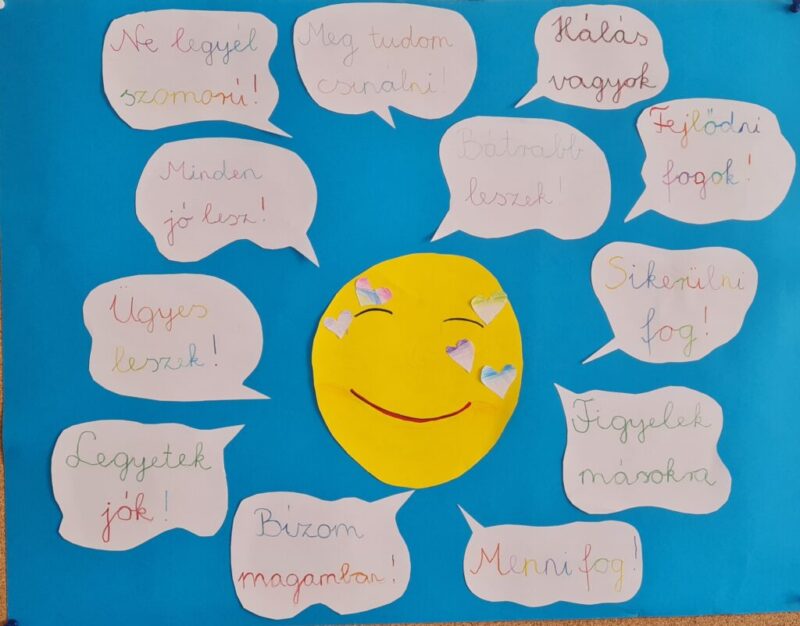 Ne legyél
szomorú!
Meg tudom
csinálni!
Hálás
vagyok
Fejlődni
fogok!
Minden
jó lesz!
Bátrabb
leszek!
Sikerülni
fog!
Ügyes
leszek!
Figyelek
másokra
Legyetek
jók!
Bízom
magamban!
Menni fog!